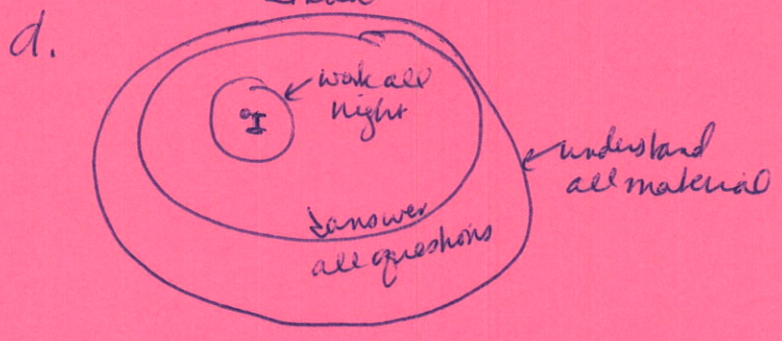 d.
work all
night
I
understand
all material
answer
all questions